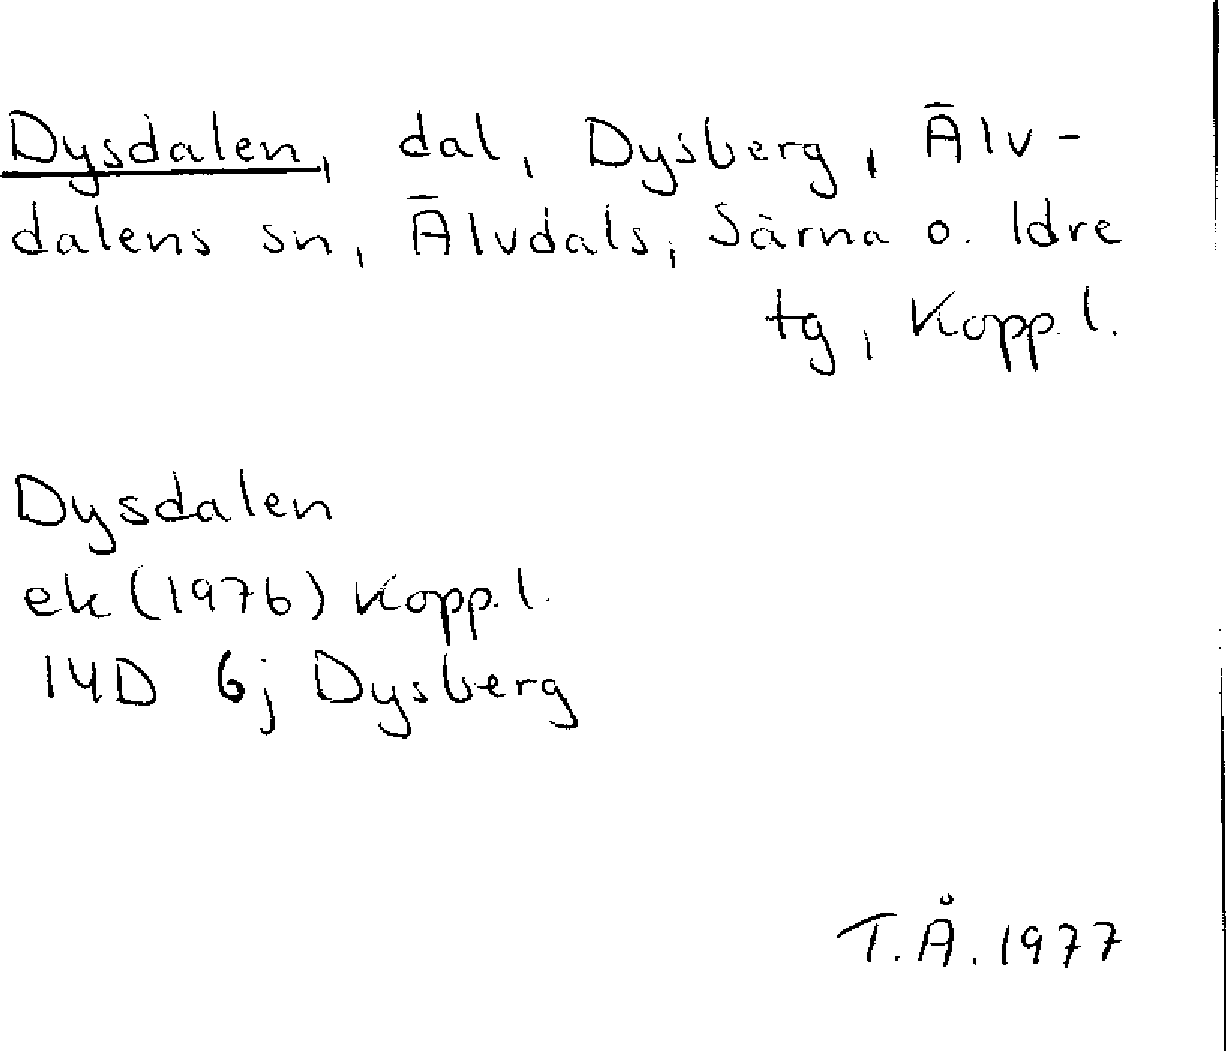 Dysdalen, dal, Dysberg, Älv-
dalens sn, Älvdals, Särna o. Idre
tg, Kopp. l.
Dysdalen
ek (1976) Kopp. l.
14D 6j Dysberg
T.Å. 1977